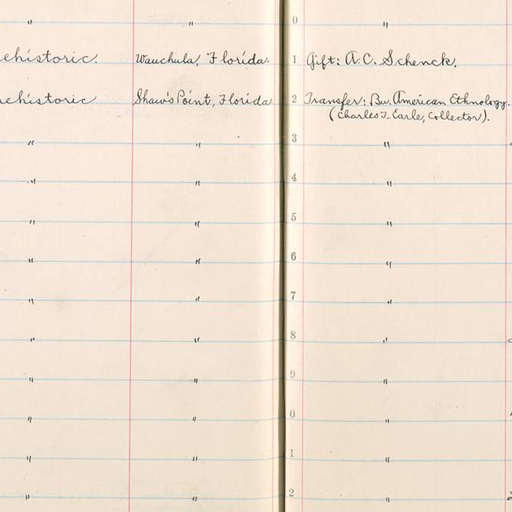 " " 0 "
ehistoric. Wauchula, Florida. 1 Gift: A.C. Schenck.
rehistoric Shaw's Point, Florida 2 Transfer: Bu. American Ethnology.
(Charles T. Earle, Collector).
" " 3 "
" " 4 "
" " 5 "
" " 6 "
" " 7 "
" " 8 "
" " 9 "
" " 0 "
" " 1 "
" " 2 "